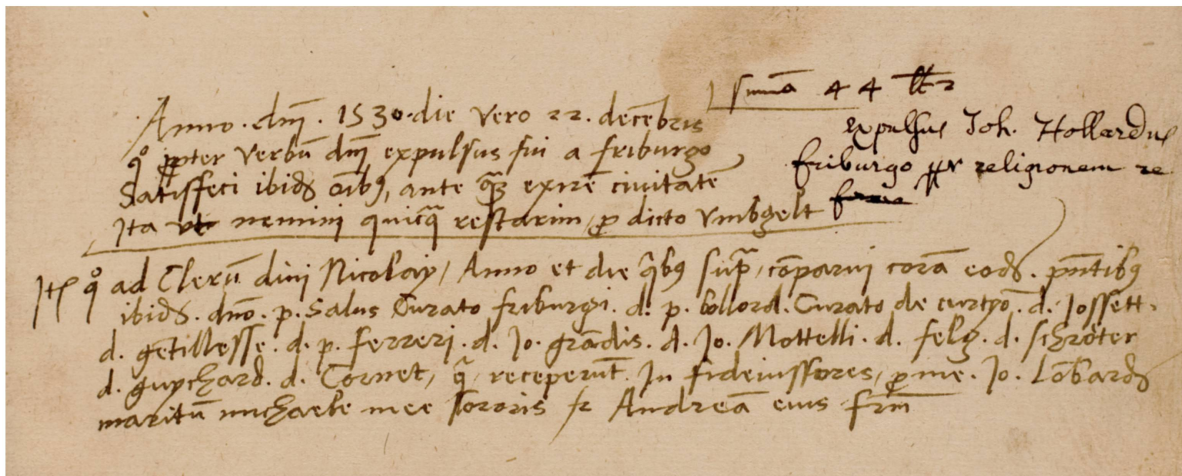 suma 44 lb 2
Anno . dnj . 1530 . die vero 22 . decebris
qo ppter verbu dnj expulsus fui a friburgo
Satisfeci ibid oibq, ante exire civitate
Ita ut nemini quicq restarim, p dicto vmbgelt
expulsus Joh. Hollardus
friburgo religionem re
ad Cleru divi Nicolay, Anno et die qbq sup, coparui cora eod . pntibq
ibid . dno . p . Salus Curato friburgi . d . p . bollord . Curato de curtyo . d . Jossett .
d . getillesse . d . p . ferreri . d . Jo . gradis . d . Jo . Mottelli . d . felg . d . schroter
d . guychard . d . Cornet, q receperut . In fideiussores, p me . Jo . Lobard
maritu michaele mee sororis Andrea eius frm